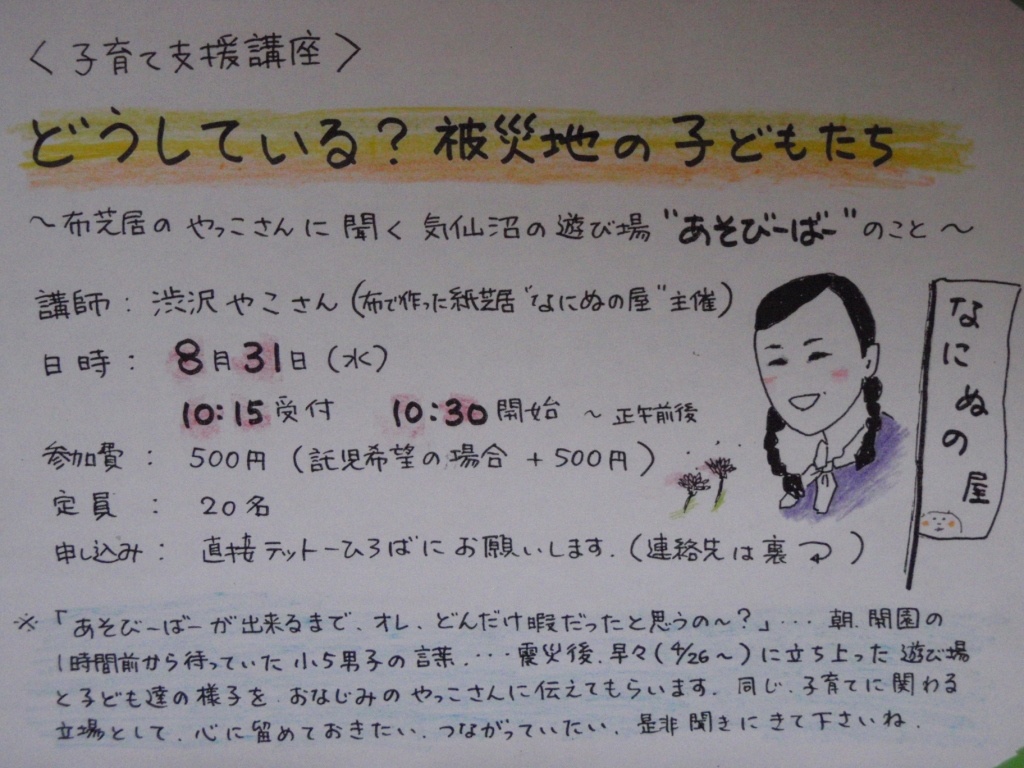 〈子育て支援講座〉
どうしている？被災地の子どもたち
～布芝居のやっこさんに聞く気仙沼の遊び場"あそびーばー"のこと～
講師：渋沢やこさん(布で作った紙芝居"なにぬの屋"主催)
日時：8月31日(水)
10:15受付 10:30開始 ～正午前後
参加費：500円(託児希望の場合+500円)
定員：20名
申し込み：直接テットーひろばにお願いします.(連絡先は裏)
なにぬの屋
※「あそびーばーが出来るまで、オレ、どんだけ暇だったと思うの～?」･･･朝、開園の
1時間前から待っていた小5男子の言葉.･･･震災後、早々(4/26～)に立ち上った遊び場
と子ども達の様子を、おなじみのやっこさんに伝えてもらいます. 同じ、子育てに関わる
立場として、心に留めておきたい、つながっていたい、是非聞きにきて下さいね.